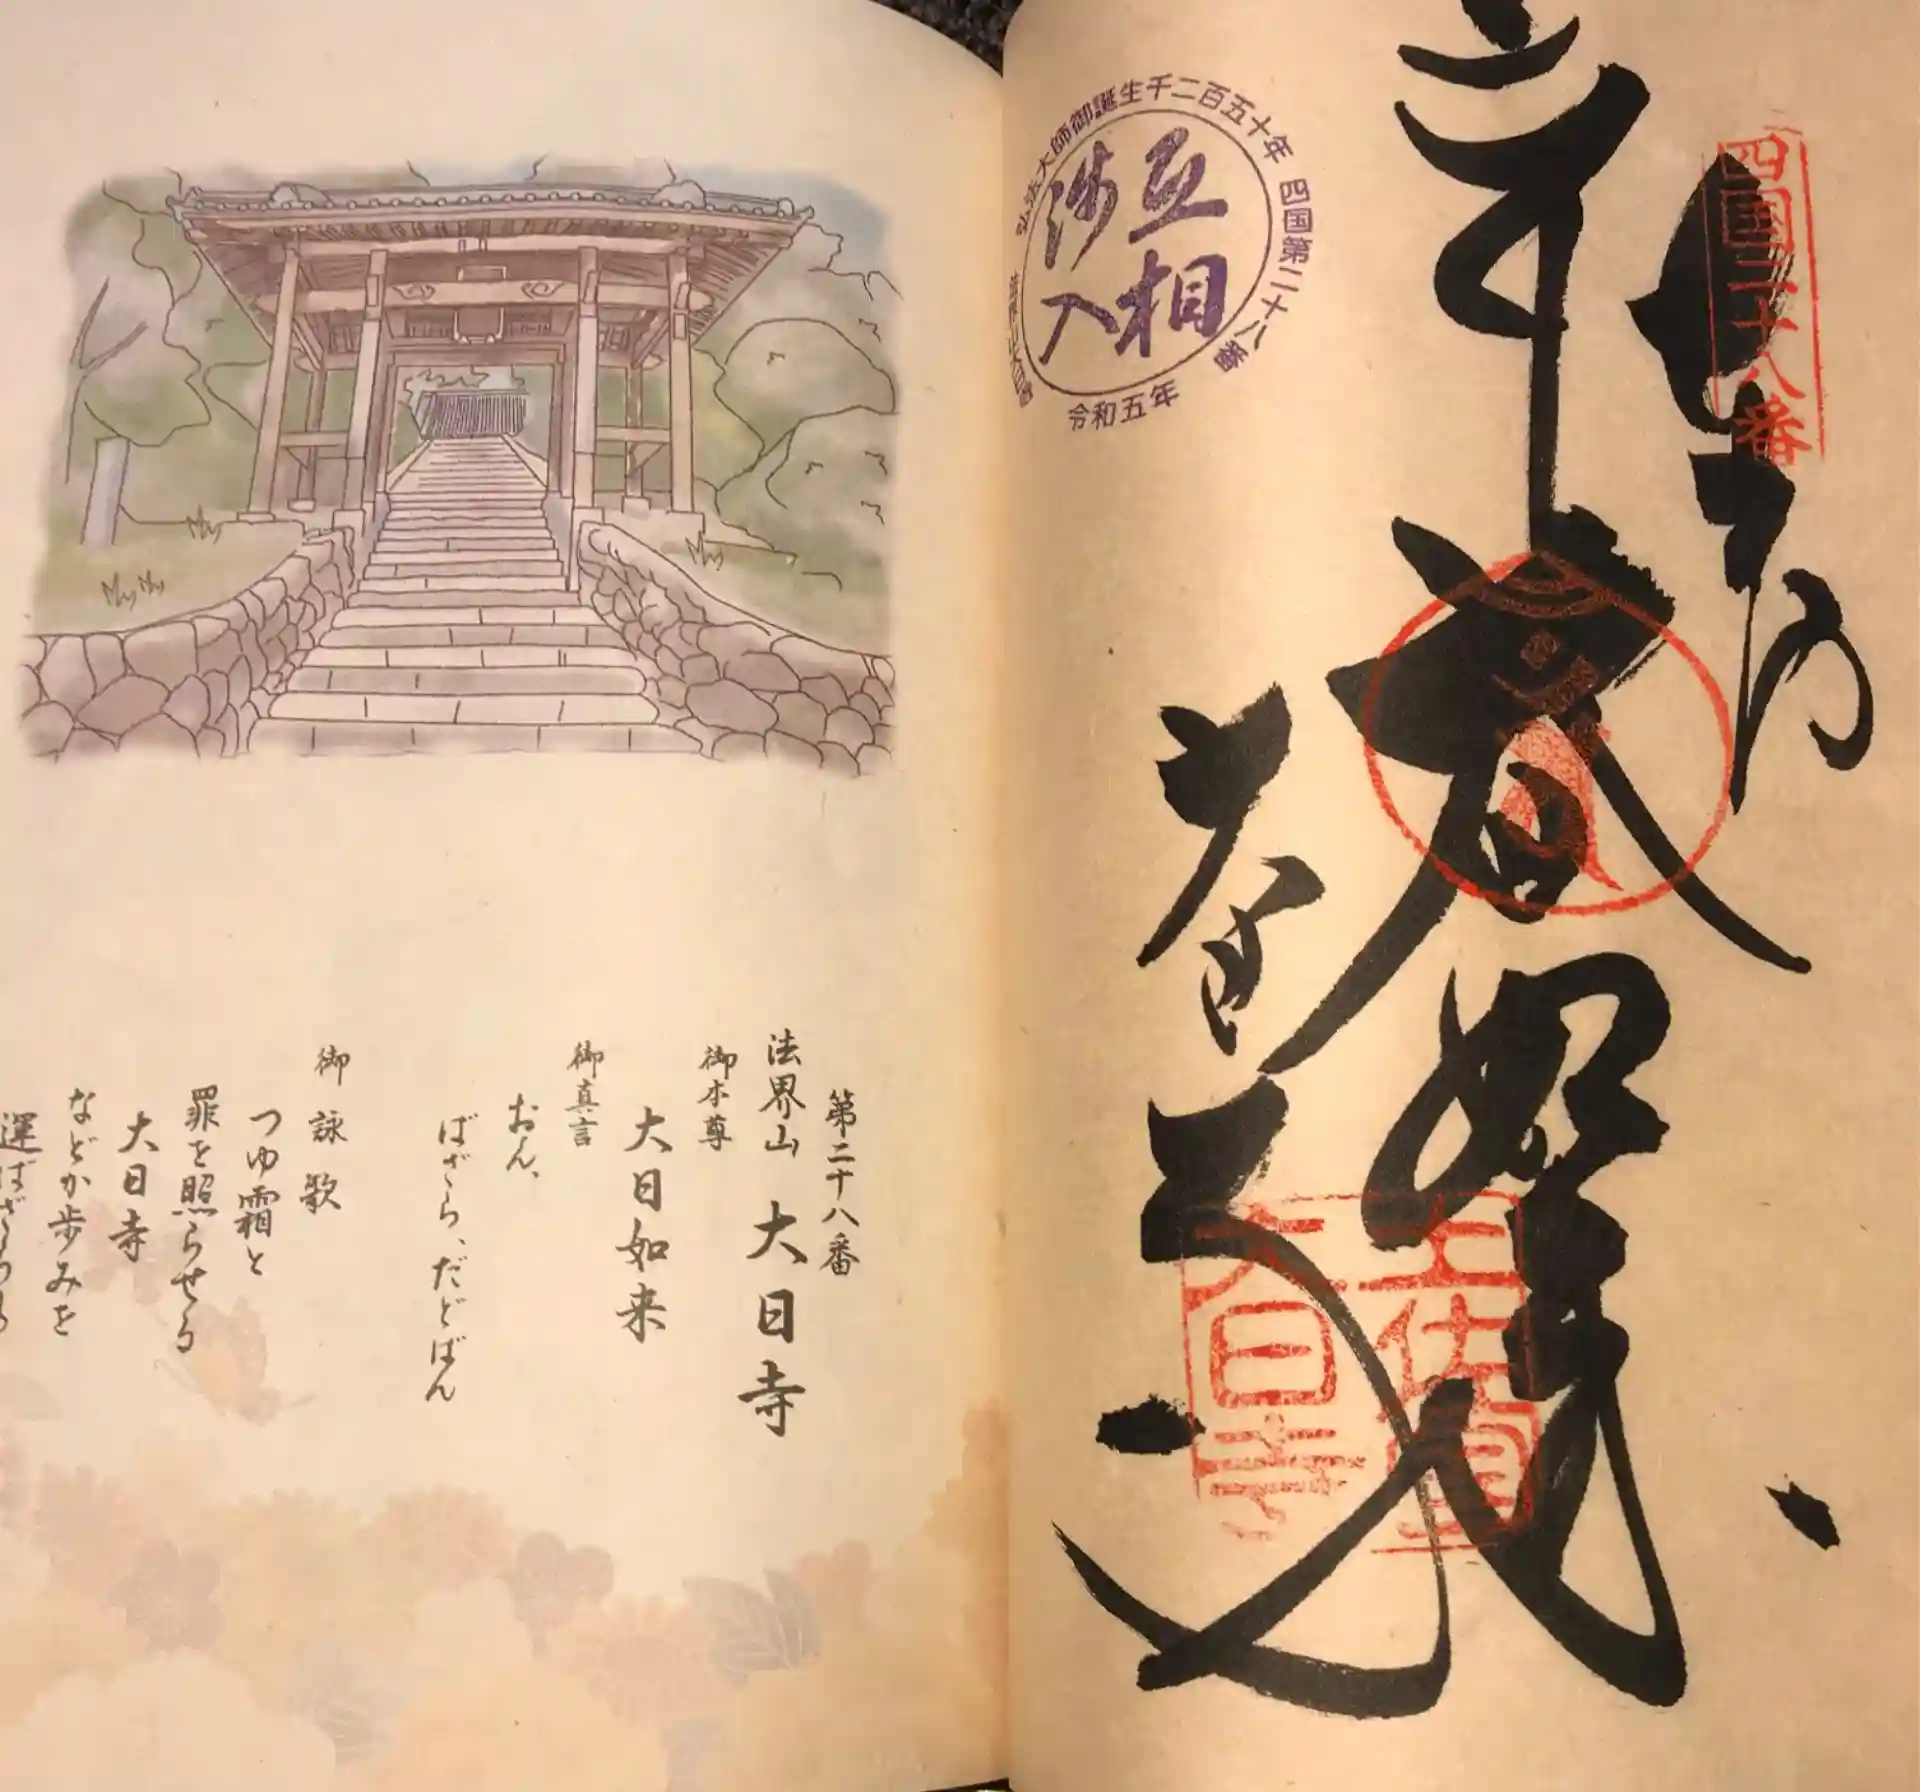 四国二十八番
奉
大日如来
大日寺
弘法大師御誕生千二百五十年
四国第二十八番
令和五年
互相
渉入
土佐国
大日寺
第二十八番
法界山 大日寺
御本尊
大日如来
御真言
おん、
ばざら、だどばん
御詠歌
つゆ霜と
罪を照らせる
大日寺
などか歩みを
運ばざらまし